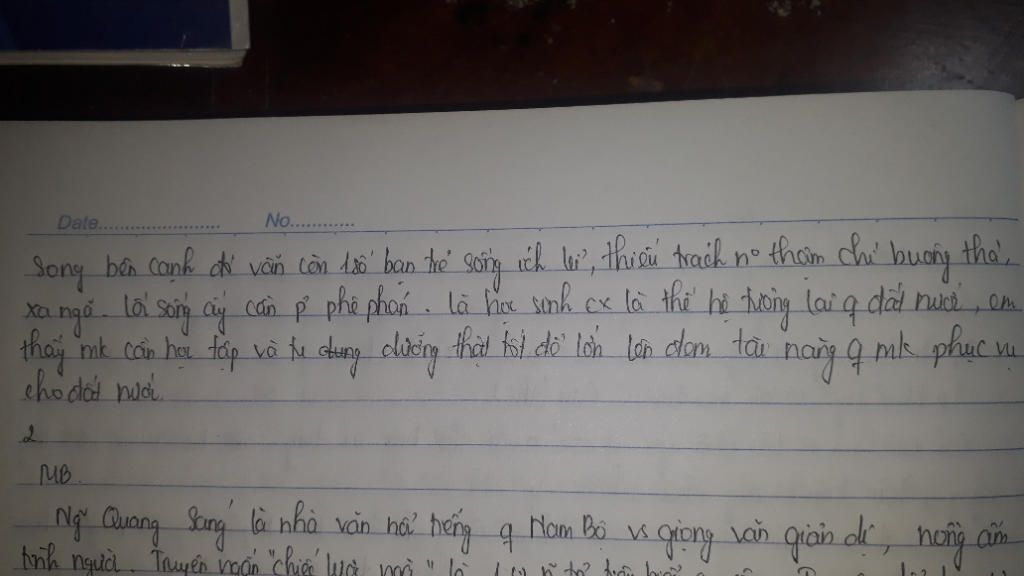 Date.................... No............
Song bên cạnh đó vẫn còn 1số bạn trẻ sống ích kỉ, thiếu trách nº thậm chí buông thả,
xa ngã. Lối sống ấy cần p phê phán. Là học sinh cx là thế hệ tương lai q đất nước, em
thấy mk cần học tập và tu dưỡng thật tốt để lớn lên đem tài năng q mk phục vụ
cho đất nước.
2
MB.
Ng~ Quang Sáng là nhà văn nổi tiếng q Nam Bộ vs giọng văn giản dị, nồng ấm
tình người. Truyện ngắn "chiếc lược ngà" là